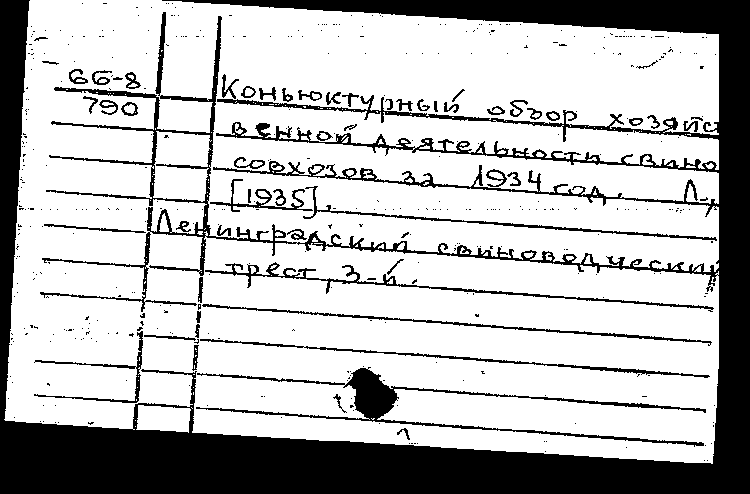 66-8
790
Коньюктурный обзор хозяйс
венной деятельности свино
совхозов за 1934 год. Л.,
[1935].
Ленинградский свиноводческий
трест, 3-й.